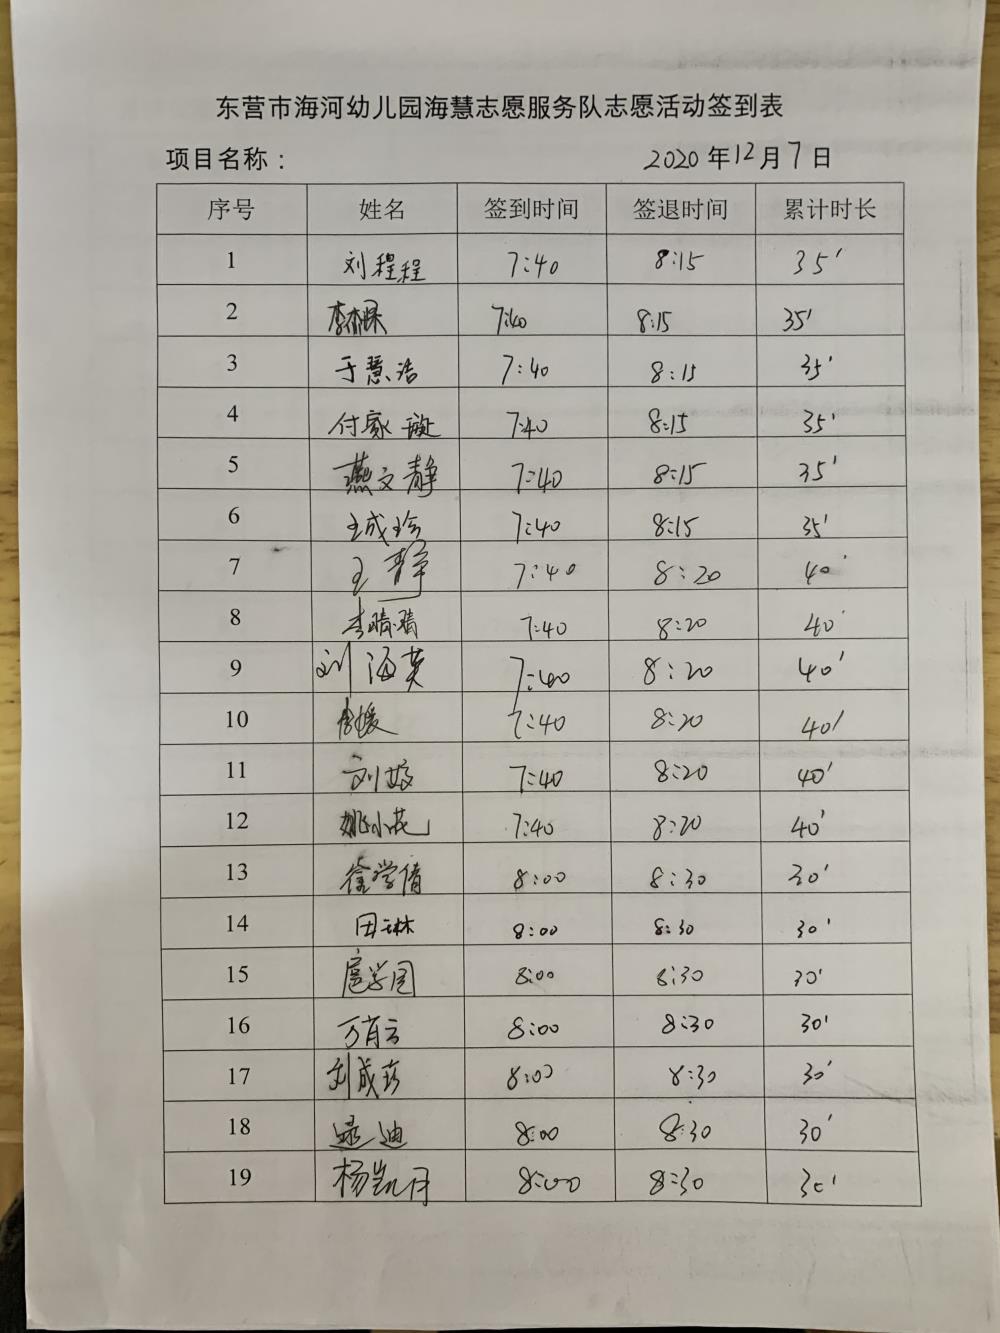 东营市海河幼儿园海慧志愿服务队志愿活动签到表
项目名称： 2020年12月7日
序号 姓名 签到时间 签退时间 累计时长
1 刘程程 7:40 8:15 35'
2 7:40 8:15 35'
3 于慧浩 7:40 8:15 35'
4 付家璇 7:40 8:15 35'
5 燕文静 7:40 8:15 35'
6 王成珍 7:40 8:15 35'
7 王静 7:40 8:20 40'
8 李晴晴 7:40 8:20 40'
9 刘海英 7:40 8:20 40'
10 7:40 8:20 40'
11 刘 7:40 8:20 40'
12 姚小花 7:40 8:20 40'
13 徐学倩 8:00 8:30 30'
14 田琳 8:00 8:30 30'
15 8:00 8:30 30'
16 万肖云 8:00 8:30 30'
17 刘成珍 8:00 8:30 30'
18 迪 8:00 8:30 30'
19 杨凯月 8:00 8:30 30'